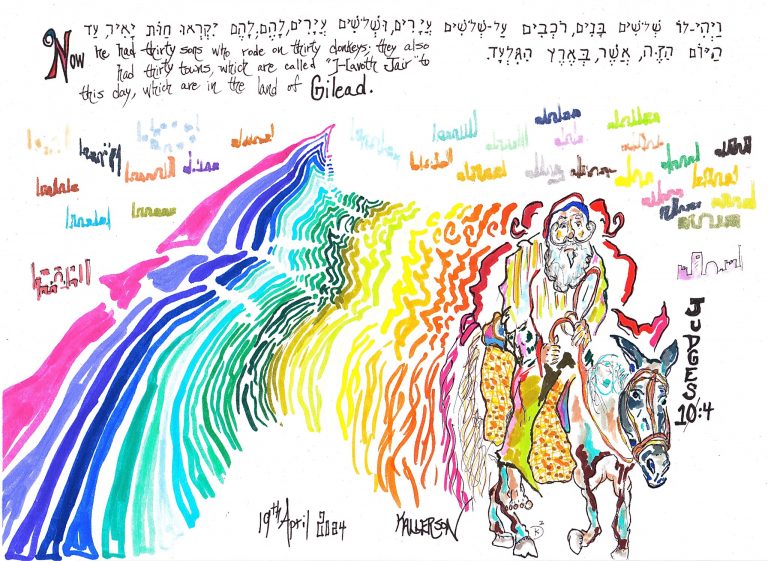 וַיְהִי-לוֹ שְׁלֹשִׁים בָּנִים, רֹכְבִים עַל-שְׁלֹשִׁים עֲיָרִים, וּשְׁלֹשִׁים עֲיָרִים, לָהֶם; לָהֶם יִקְרְאוּ חַוֺּת יָאִיר, עַד
הַיּוֹם הַזֶּה, אֲשֶׁר, בְּאֶרֶץ הַגִּלְעָד.
Now he had thirty sons who rode on thirty donkeys; they also
had thirty towns, which are called "Havoth Jair" to
this day, which are in the land of Gilead.
JUDGES
10:4
19th April 2024
KALLERSON